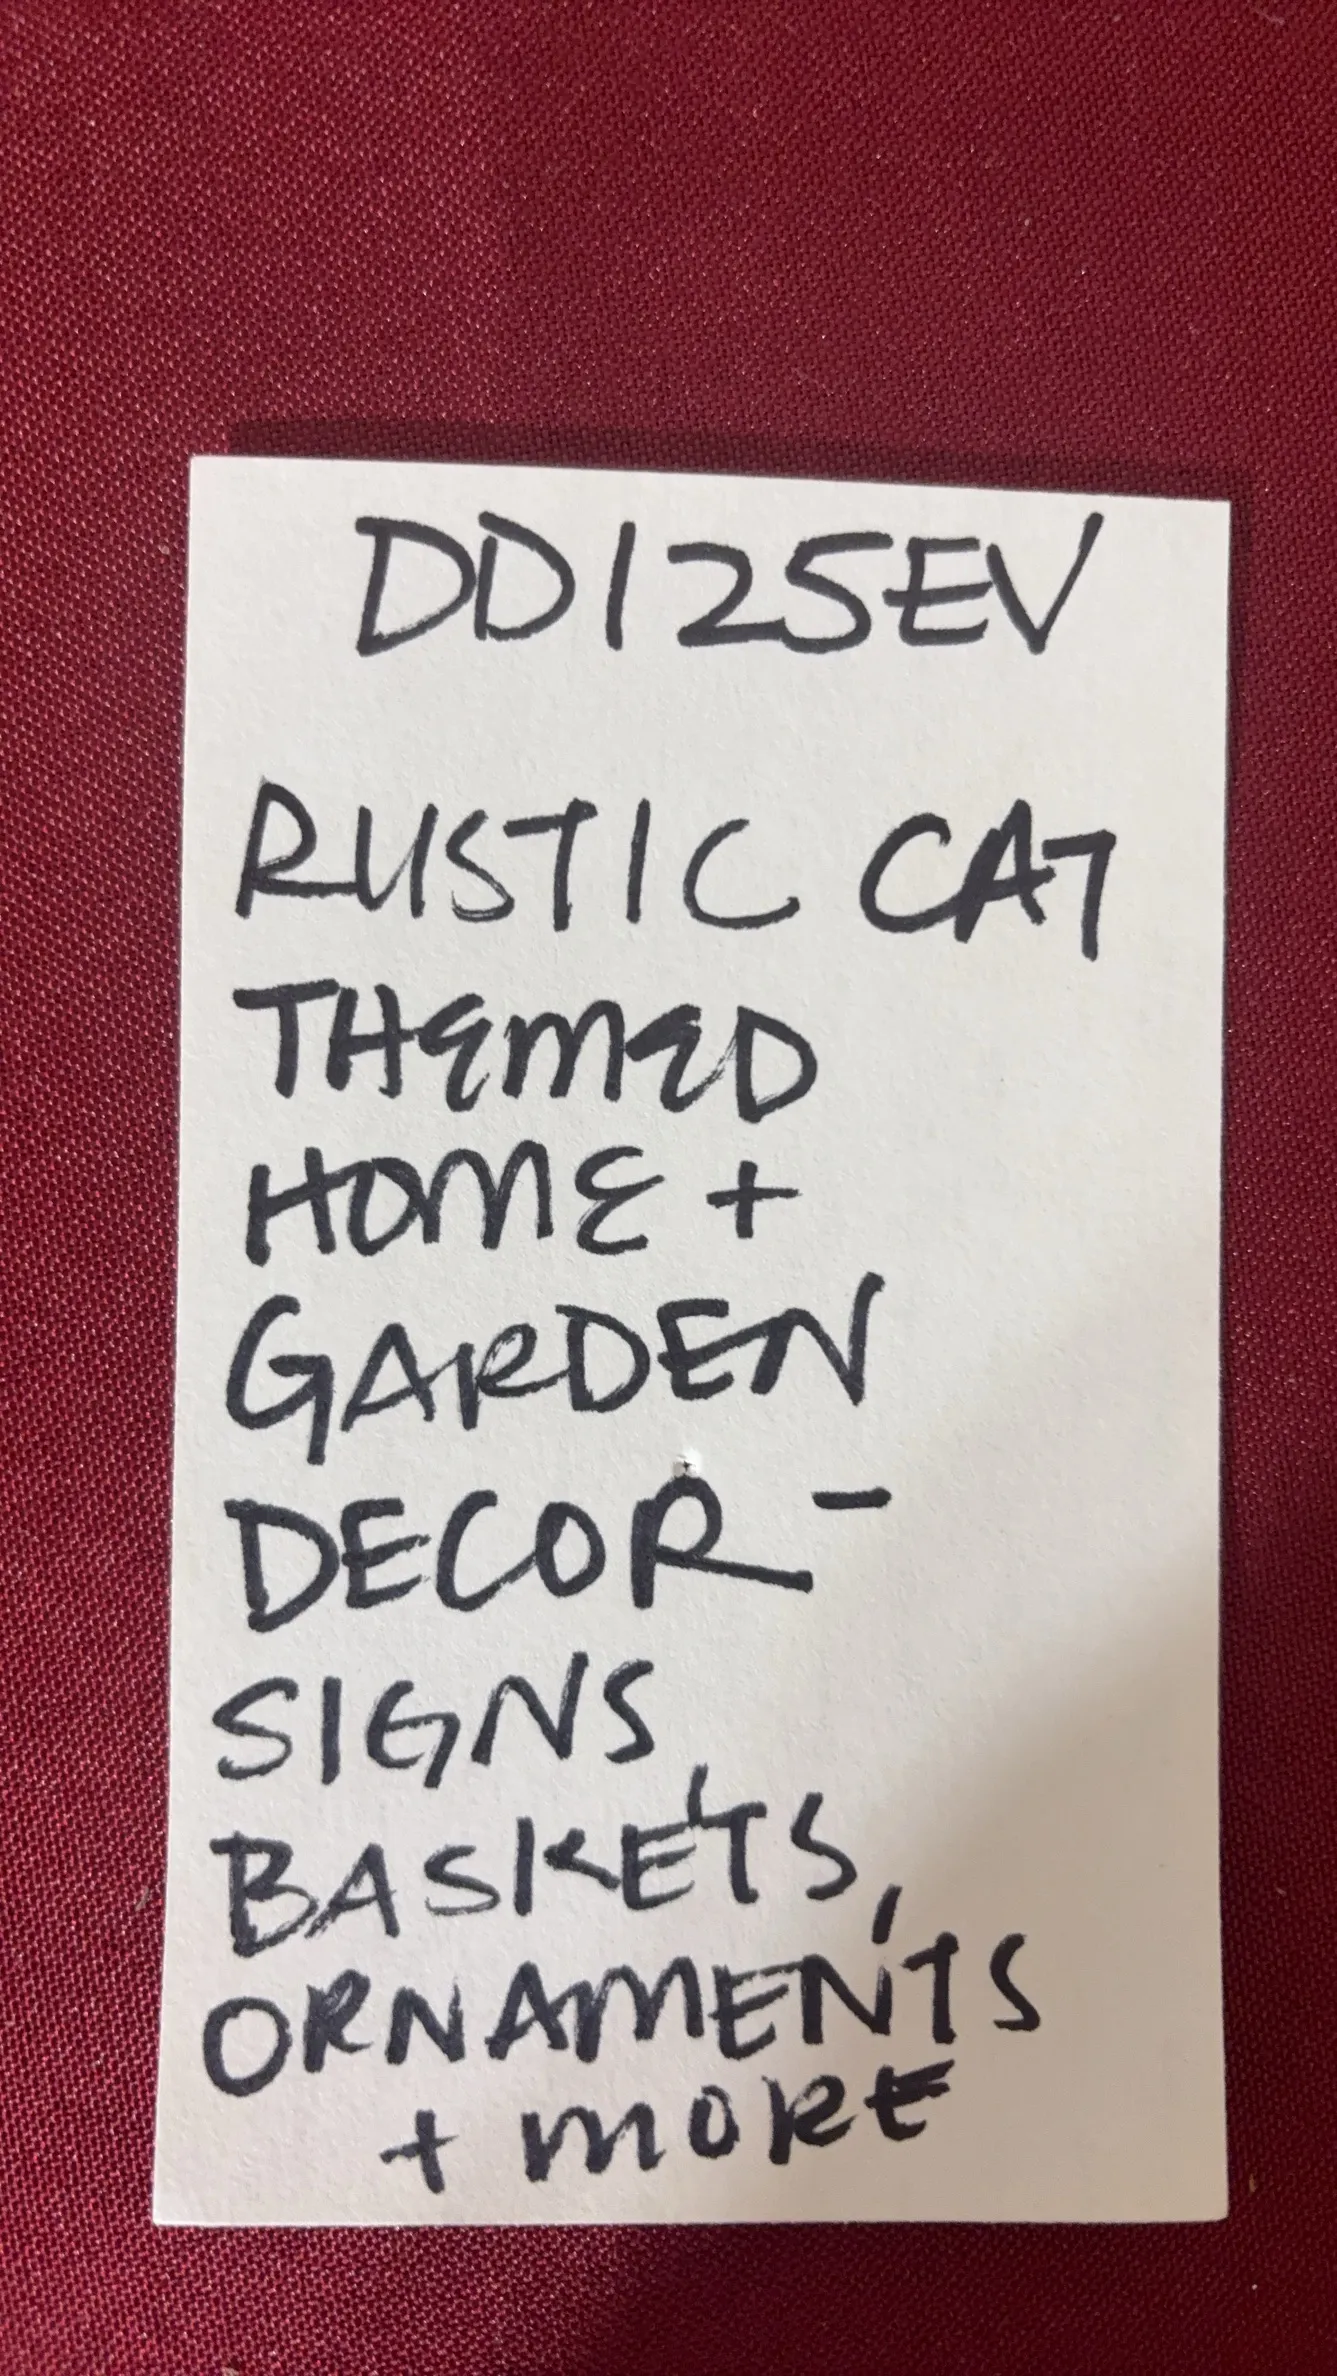 DD125EV
RUSTIC CAT
THEMED
HOME +
GARDEN
DECOR -
SIGNS,
BASKETS,
ORNAMENTS
+ MORE